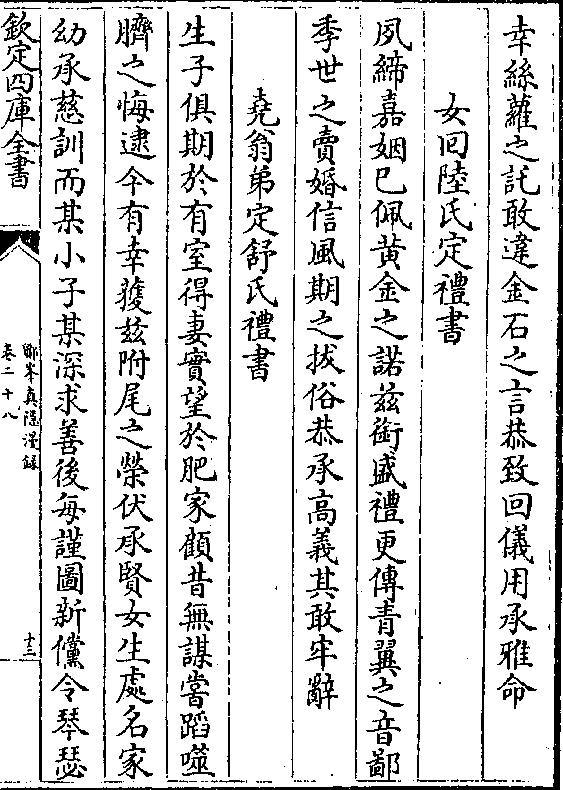 幸絲蘿之託敢違金石之言恭致回儀用承雅命
女回陸氏定禮書
夙締嘉姻已佩黃金之諾茲銜盛禮更傳青翼之音鄙
季世之賣婚信風期之拔俗恭承高義其敢牢辭
堯翁弟定舒氏禮書
生子俱期於有室得妻實望於肥家顧昔無謀嘗蹈噬
臍之悔逮今有幸獲茲附尾之榮伏承賢女生處名家
幼承慈訓而某小子某深求善後每謹圖新儻令琴瑟
欽定四庫全書
鄮峯真隱漫錄
卷二十八
十三